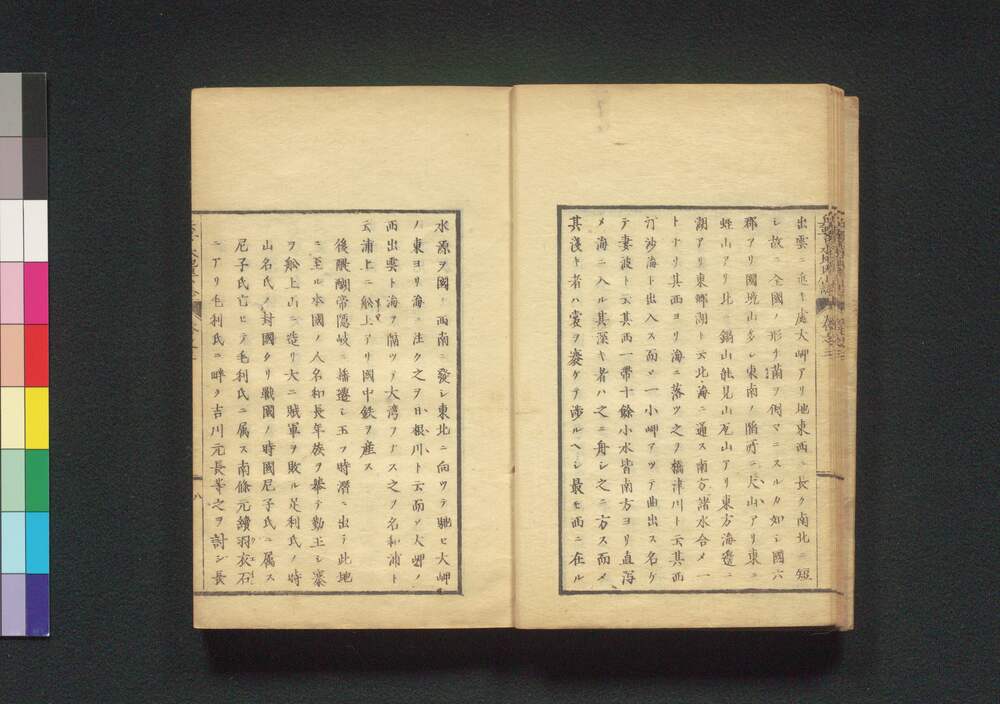 出雲ニ近キ處大岬アリ地東西ニ長ク南北ニ短
シ故ニ全國ノ形サ菌ヲ倒マニスルカ如シ國六
郡アリ國境山多シ東南ノ隅所ニ大山アリ東ニ
蛭山アリ北ニ鍋山能見山瓦山アリ東方海邊ニ
湖アリ東郷湖ト云北海ニ通ス南方諸水合メ一
トナリ其西ヨリ海ニ落ツ之ヲ橋津川ト云其西
汀沙海ト出入ス而メ一小岬アツテ曲出ス名ケ
テ妻波ト云其西一帶十餘小水皆南方ヨリ直瀉
メ海ニ入ル其深キ者ハ之ニ舟シ之ニ方ス而メ
其淺キ者ハ裳ヲ褰ゲテ渉ルヘシ最モ西ニ在ル
水源ヲ國ノ西南ニ發シ東北ニ向ツテ馳ヒ大岬
ノ東ヨリ海ニ注ク之ヲ日根川ト云而メ大岬ノ
西出雲ト海ヲ隔ツテ大湾ヲナス之ヲ名和浦ト
云浦上ニ舩上アリ國中鉄ヲ産ス
後醍醐帝隠岐ニ播遷シ玉フ時潜ニ出テ此地
ニ至ル本國ノ人名和長年族ヲ擧テ勤王シ寨
ヲ舩上山ニ造リ大ニ賊軍ヲ敗ル足利氏ノ時
山名氏ノ封國タリ戰國ノ時國尼子氏ニ属ス
尼子氏亡ヒテ毛利氏ニ属ス南條元續羽衣石
ニアリ毛利氏ニ畔ク吉川元長等之ヲ討シ長
八